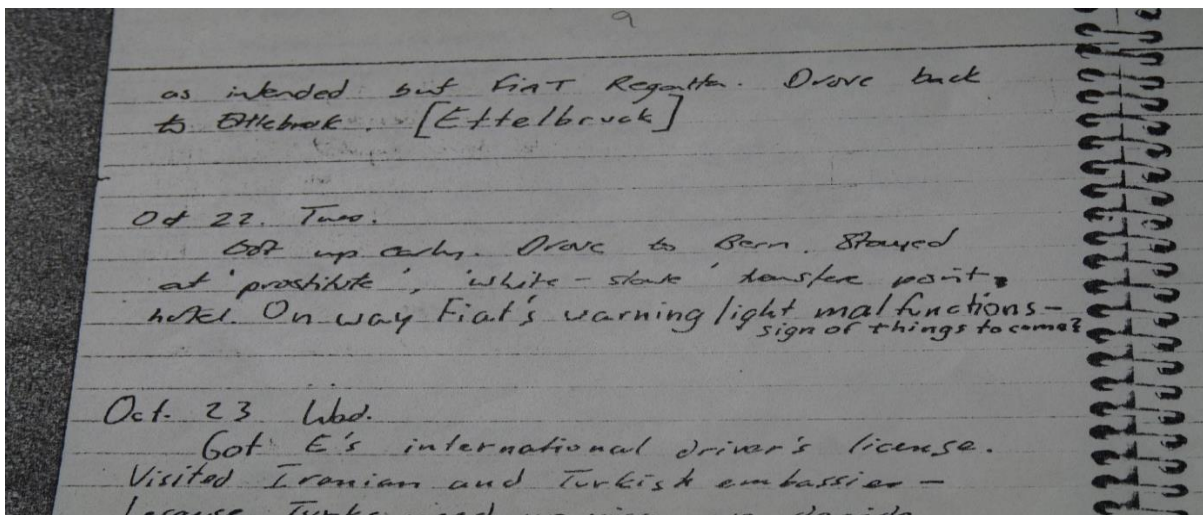 9
as intended but FiAT Regatta. Drove back
to Ettlebrak. [Ettelbruck]
Oct 22. Tues.
Got up early. Drove to Bern. Stayed
at 'prostitute', 'white-slave' transfere point,
hotel. On way Fiat's warning light malfunctions -
sign of things to come?
Oct. 23 Wed.
Got E's international driver's license.
Visited Iranian and Turkish embassies -
because Turkey